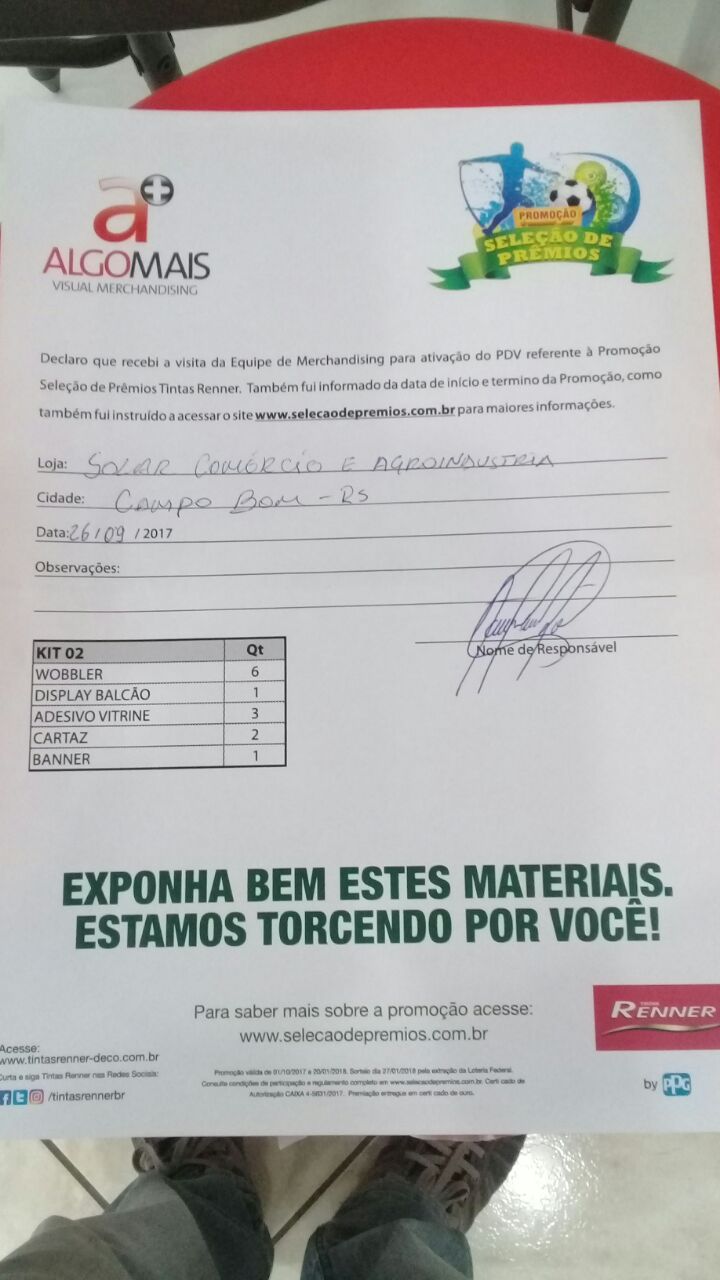 a+
ALGOMAIS
VISUAL MERCHANDISING
PROMOÇÃO
SELEÇÃO DE
PRÊMIOS
Declaro que recebi a visita da Equipe de Merchandising para ativação do PDV referente à Promoção
Seleção de Prêmios Tintas Renner. Também fui informado da data de início e termino da Promoção, como
também fui instruído a acessar o site www.selecaodepremios.com.br para maiores informações.
Loja: SOLAR COMÉRCIO E AGROINDUSTRIA
Cidade: CAMPO BOM - RS
Data: 26/09 / 2017
Observações:
Nome de Responsável
KIT 02 Qt
WOBBLER 6
DISPLAY BALCÃO 1
ADESIVO VITRINE 3
CARTAZ 2
BANNER 1
EXPONHA BEM ESTES MATERIAIS.
ESTAMOS TORCENDO POR VOCÊ!
Para saber mais sobre a promoção acesse:
www.selecaodepremios.com.br
TINTAS
RENNER
by PPG
Acesse:
www.tintasrenner-deco.com.br
Curta e siga Tintas Renner nas Redes Sociais:
/tintasrennerbr
Promoção válida de 01/10/2017 a 20/01/2018. Sorteio dia 27/01/2018 pela extração da Loteria Federal.
Consulte condições de participação e regulamento completo em www.selecaodepremios.com.br. Certi cado de
Autorização CAIXA 4-5631/2017. Premiação entregue em certi cado de ouro.